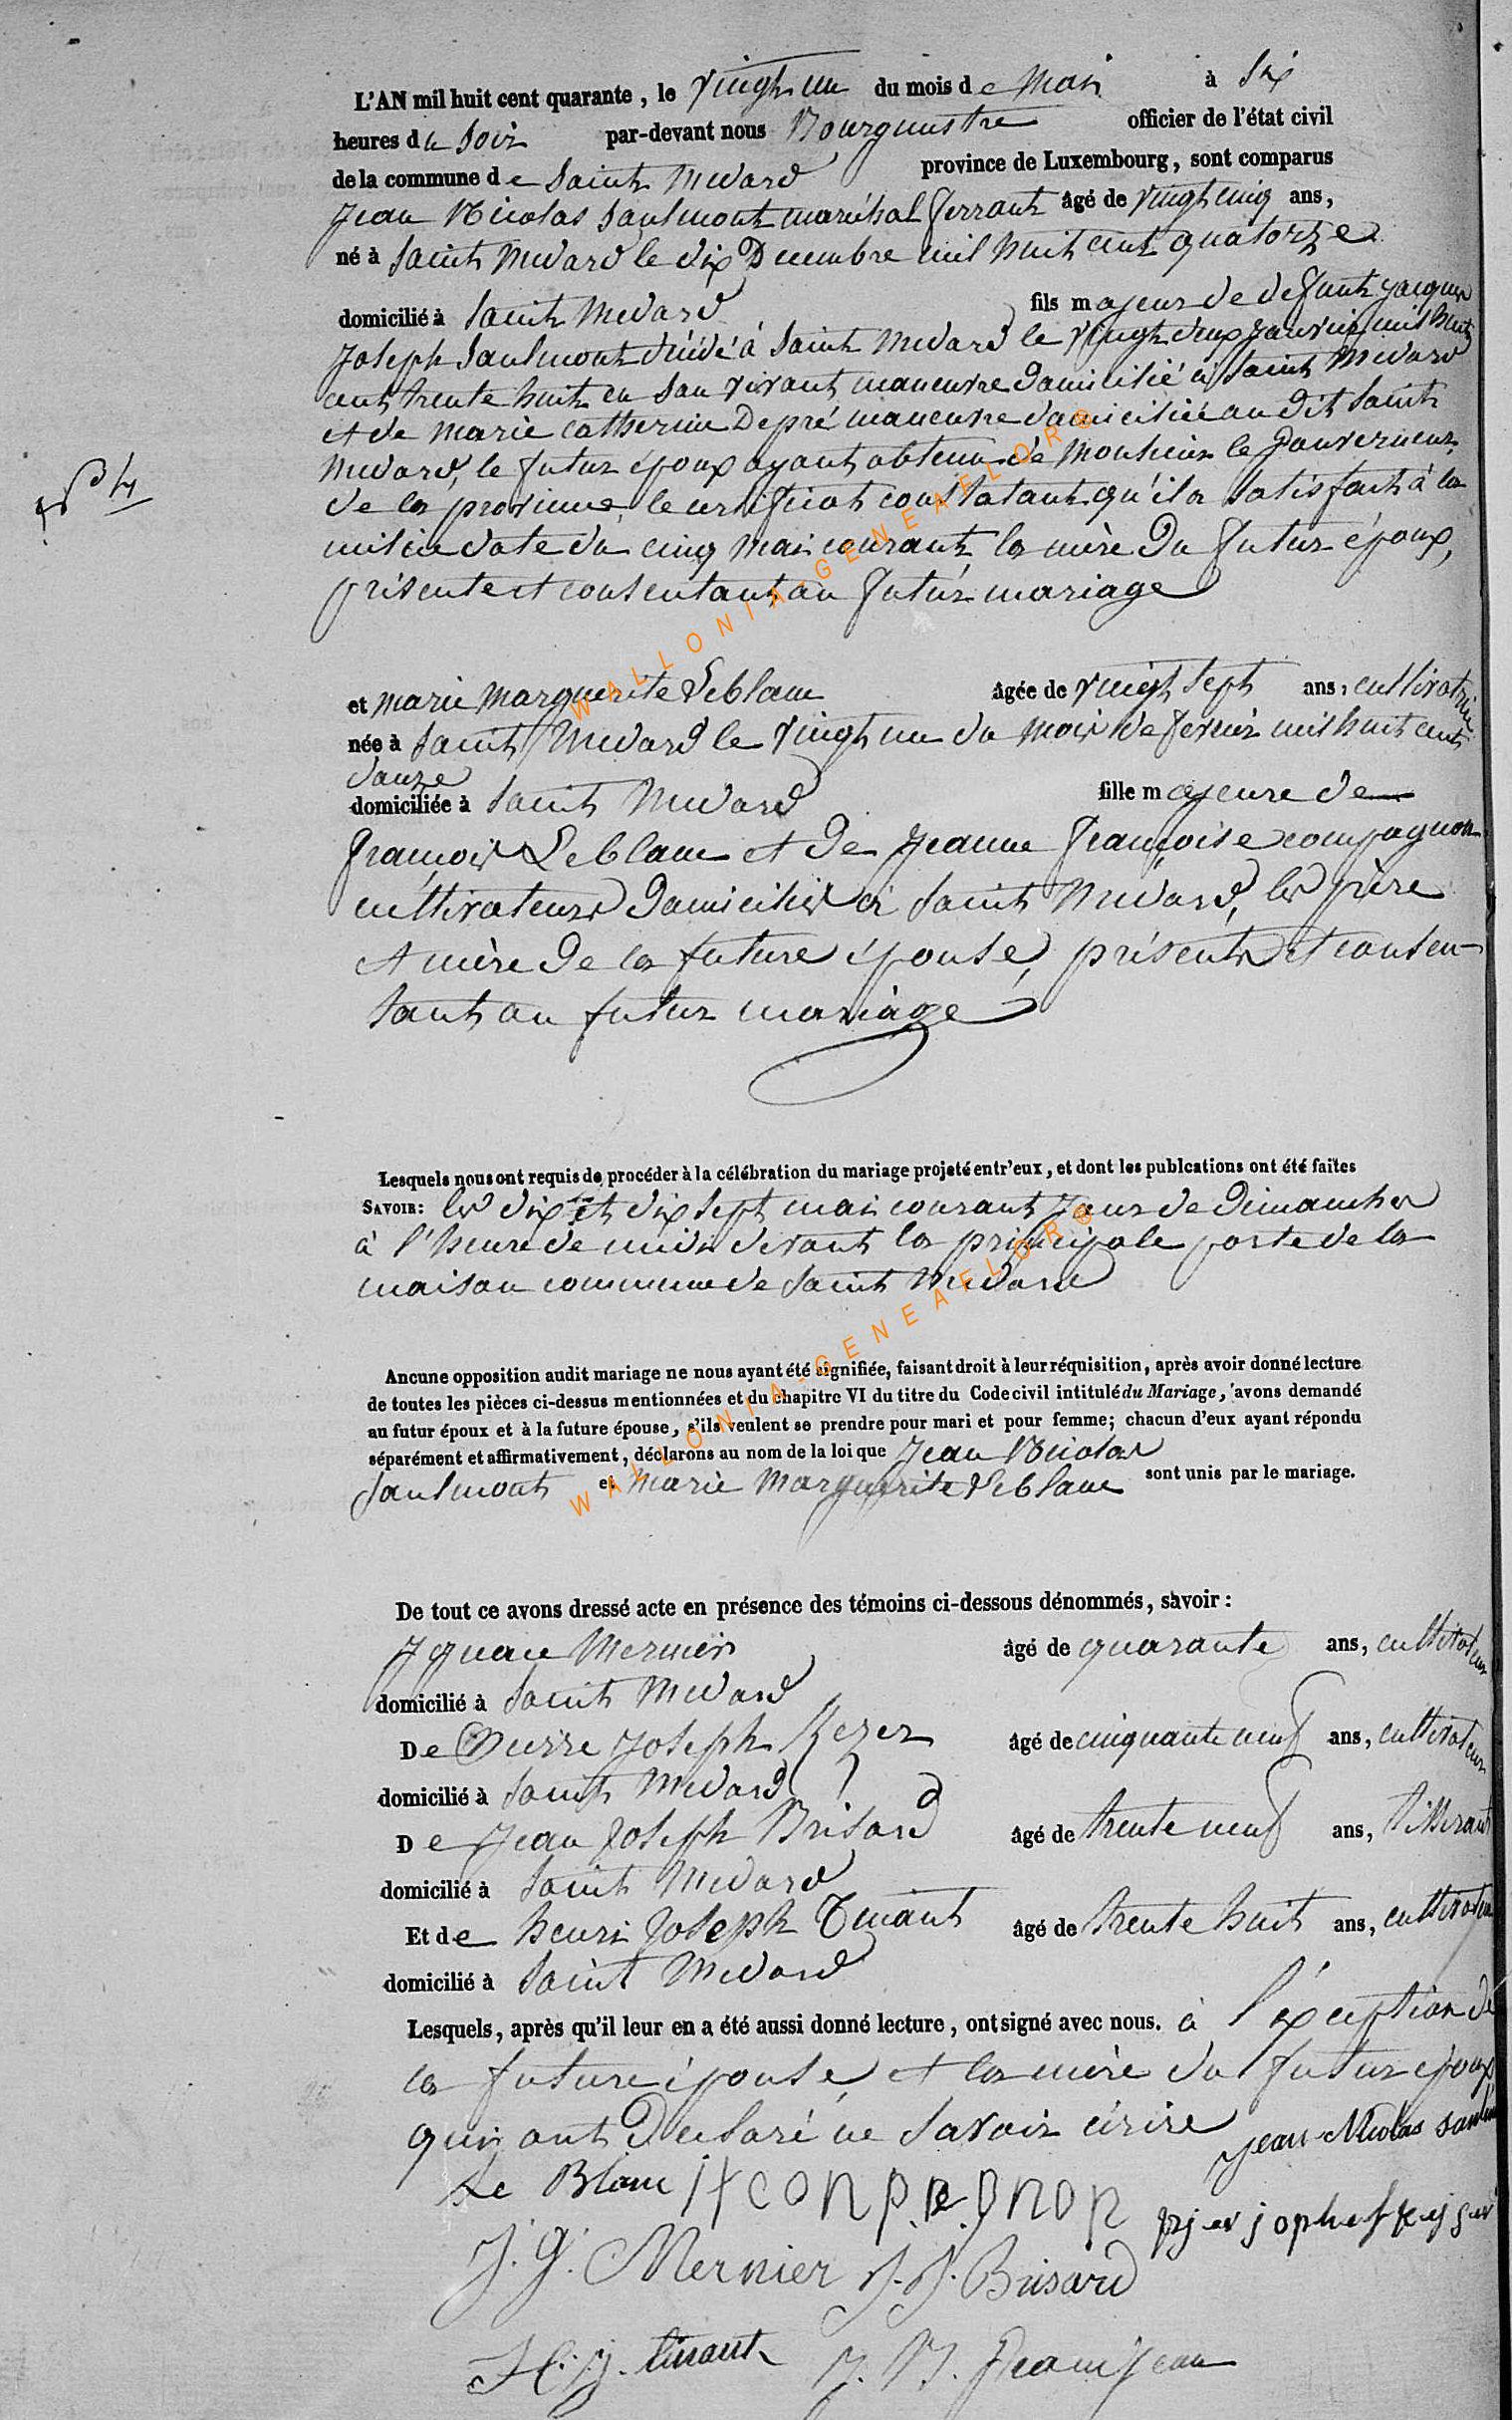 L'AN mil huit cent quarante, le vingt un du mois de Mai à six
heures du soir par-devant nous Bourgmestre officier de l'état civil
de la commune de Saint Medard province de Luxembourg, sont comparus
Jean Nicolas Saulmont maréchal ferrant âgé de vingt cinq ans,
né à Saint Medard le dix Decembre mil huit cent quatorze
domicilié à Saint Medard fils majeur de defunt jacques
Joseph Saulmont décédé à Saint Medard le vingt deux janvier mil huit
cent trente huit en son vivant maneuvre domicilié à Saint Medard
et de Marie Catherine Depré maneuvre domiciliée au dit Saint
Medard, le futur époux ayant obtenu de Monsieur le Gouverneur
de la province, le certificat constatant qu'il a satisfait à la
milice date du cinq mai courant, la mère du futur époux,
présente et consentant au futur mariage
N° 4
et marie marguerite Leblanc âgée de vingt sept ans, cultivatrice
née à Saint Medard le vingt un du mois de fevrier mil huit cent
douze
domiciliée à Saint Medard fille majeure de
françois Leblanc et de Jeanne françoise compagnon
cultivateurs domiciliés à Saint Medard, les père
et mère de la future épouse, présents et consen-
tant au futur mariage
Lesquels nous ont requis de procéder à la célébration du mariage projeté entr'eux, et dont les publcations ont été faites
SAVOIR: les dix et dix sept mai courant jours de Dimanches
à l'heure de midi devant la principale porte de la
maison commune de Saint Medard
Ancune opposition audit mariage ne nous ayant été signifiée, faisant droit à leur réquisition, après avoir donné lecture
de toutes les pièces ci-dessus mentionnées et du chapitre VI du titre du Code civil intitulé du Mariage, avons demandé
au futur époux et à la future épouse, s'ils veulent se prendre pour mari et pour femme; chacun d'eux ayant répondu
séparément et affirmativement, déclarons au nom de la loi que Jean Nicolas
Saulmont et Marie Marguerite Leblanc sont unis par le mariage.
De tout ce avons dressé acte en présence des témoins ci-dessous dénommés, savoir:
Jgnace Mernier âgé de quarante ans, cultivateur
domicilié à Saint Medard
De Pierre Joseph Kezer âgé de cinquante neuf ans, cultivateur
domicilié à Saint Medard
De Jean Joseph Brisard âgé de trente neuf ans, tisserant
domicilié à Saint Medard
Et de henri Joseph Tinant âgé de trente huit ans, cultivateur
domicilié à Saint Medard
Lesquels, après qu'il leur en a été aussi donné lecture, ont signé avec nous. à l'éxception de
la future épouse, et la mère du futur époux
qui ont Declaré ne savoir écrire Jean Nicolas
Le Blanc
J. J. Mernier J. J. Brisard
H. J. tinant J. N. Grandjean
WALLONIA-GENEAFLOR®
WALLONIA-GENEAFLOR®